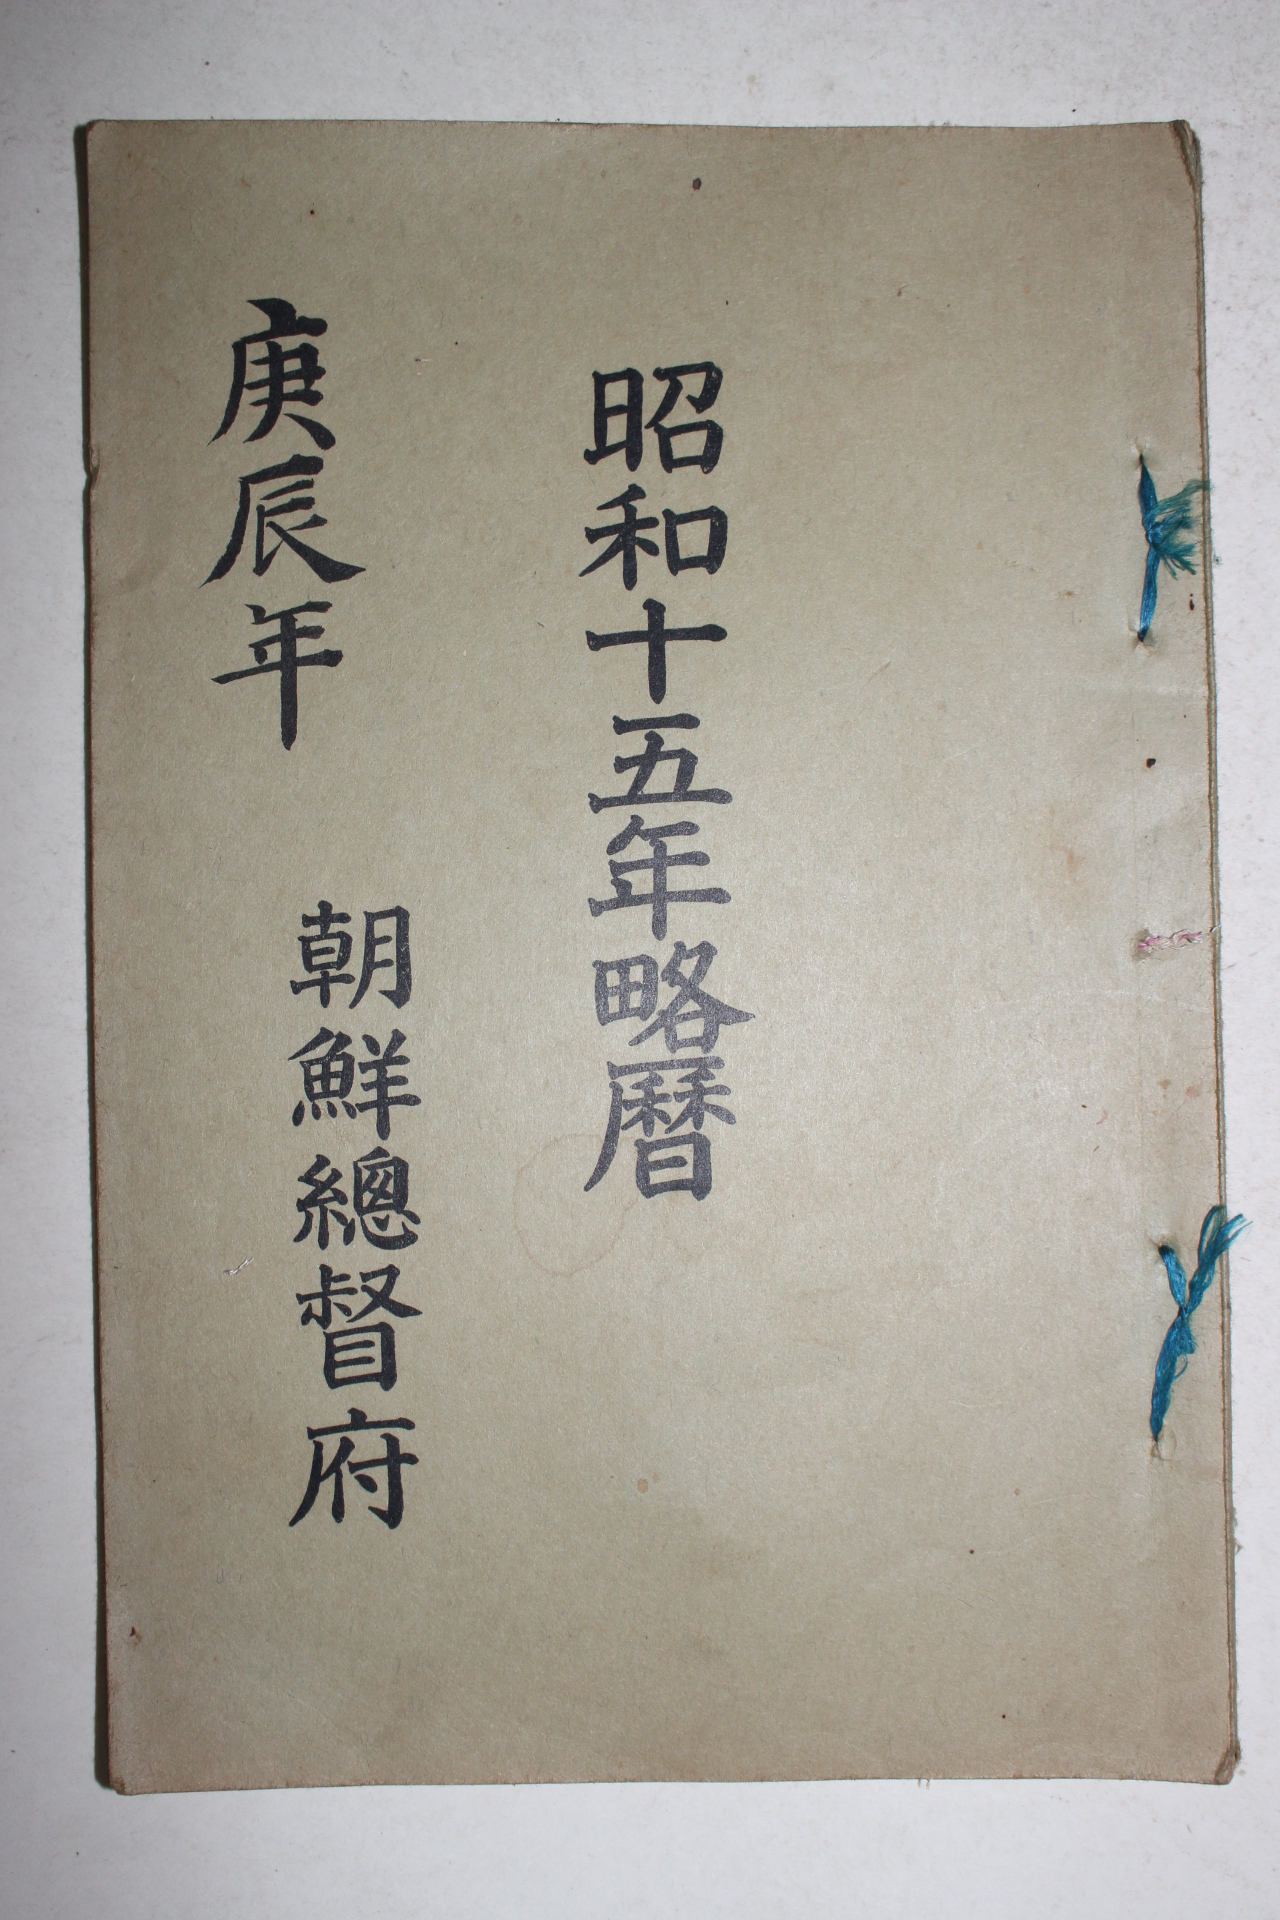 昭和十五年略曆
朝鮮總督府
庚辰年